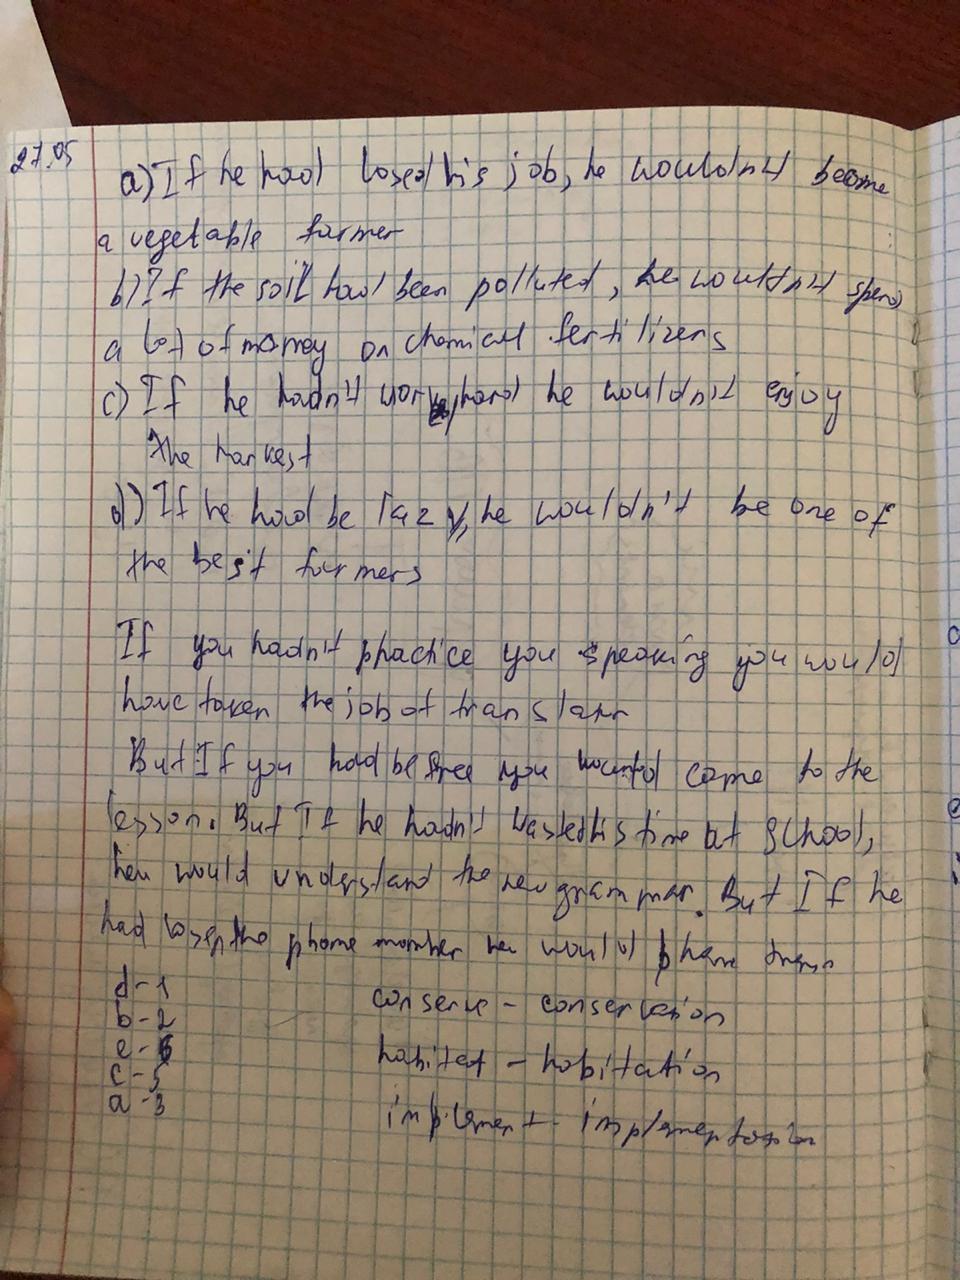 27.05
a) If he had losed his job, he wouldn't become
a vegetable farmer
b) If the soil had been polluted, he wouldn't spend
a lot of money on chemical fertilizers
c) If he hadn't work hard he wouldn't enjoy
the harvest
d) If he had be lazy, he wouldn't be one of
the best farmers
If you hadn't practice you speaking you would
have taken the job of
But If you had be free you would come to the
lesson. But If he hadn't wasted his time at school,
would understand the new grammar. But If he
had the phone would
d-1
b-2
e-6
c-5
a-3
conserve - conservation
habitat - habitation
implement - implementation